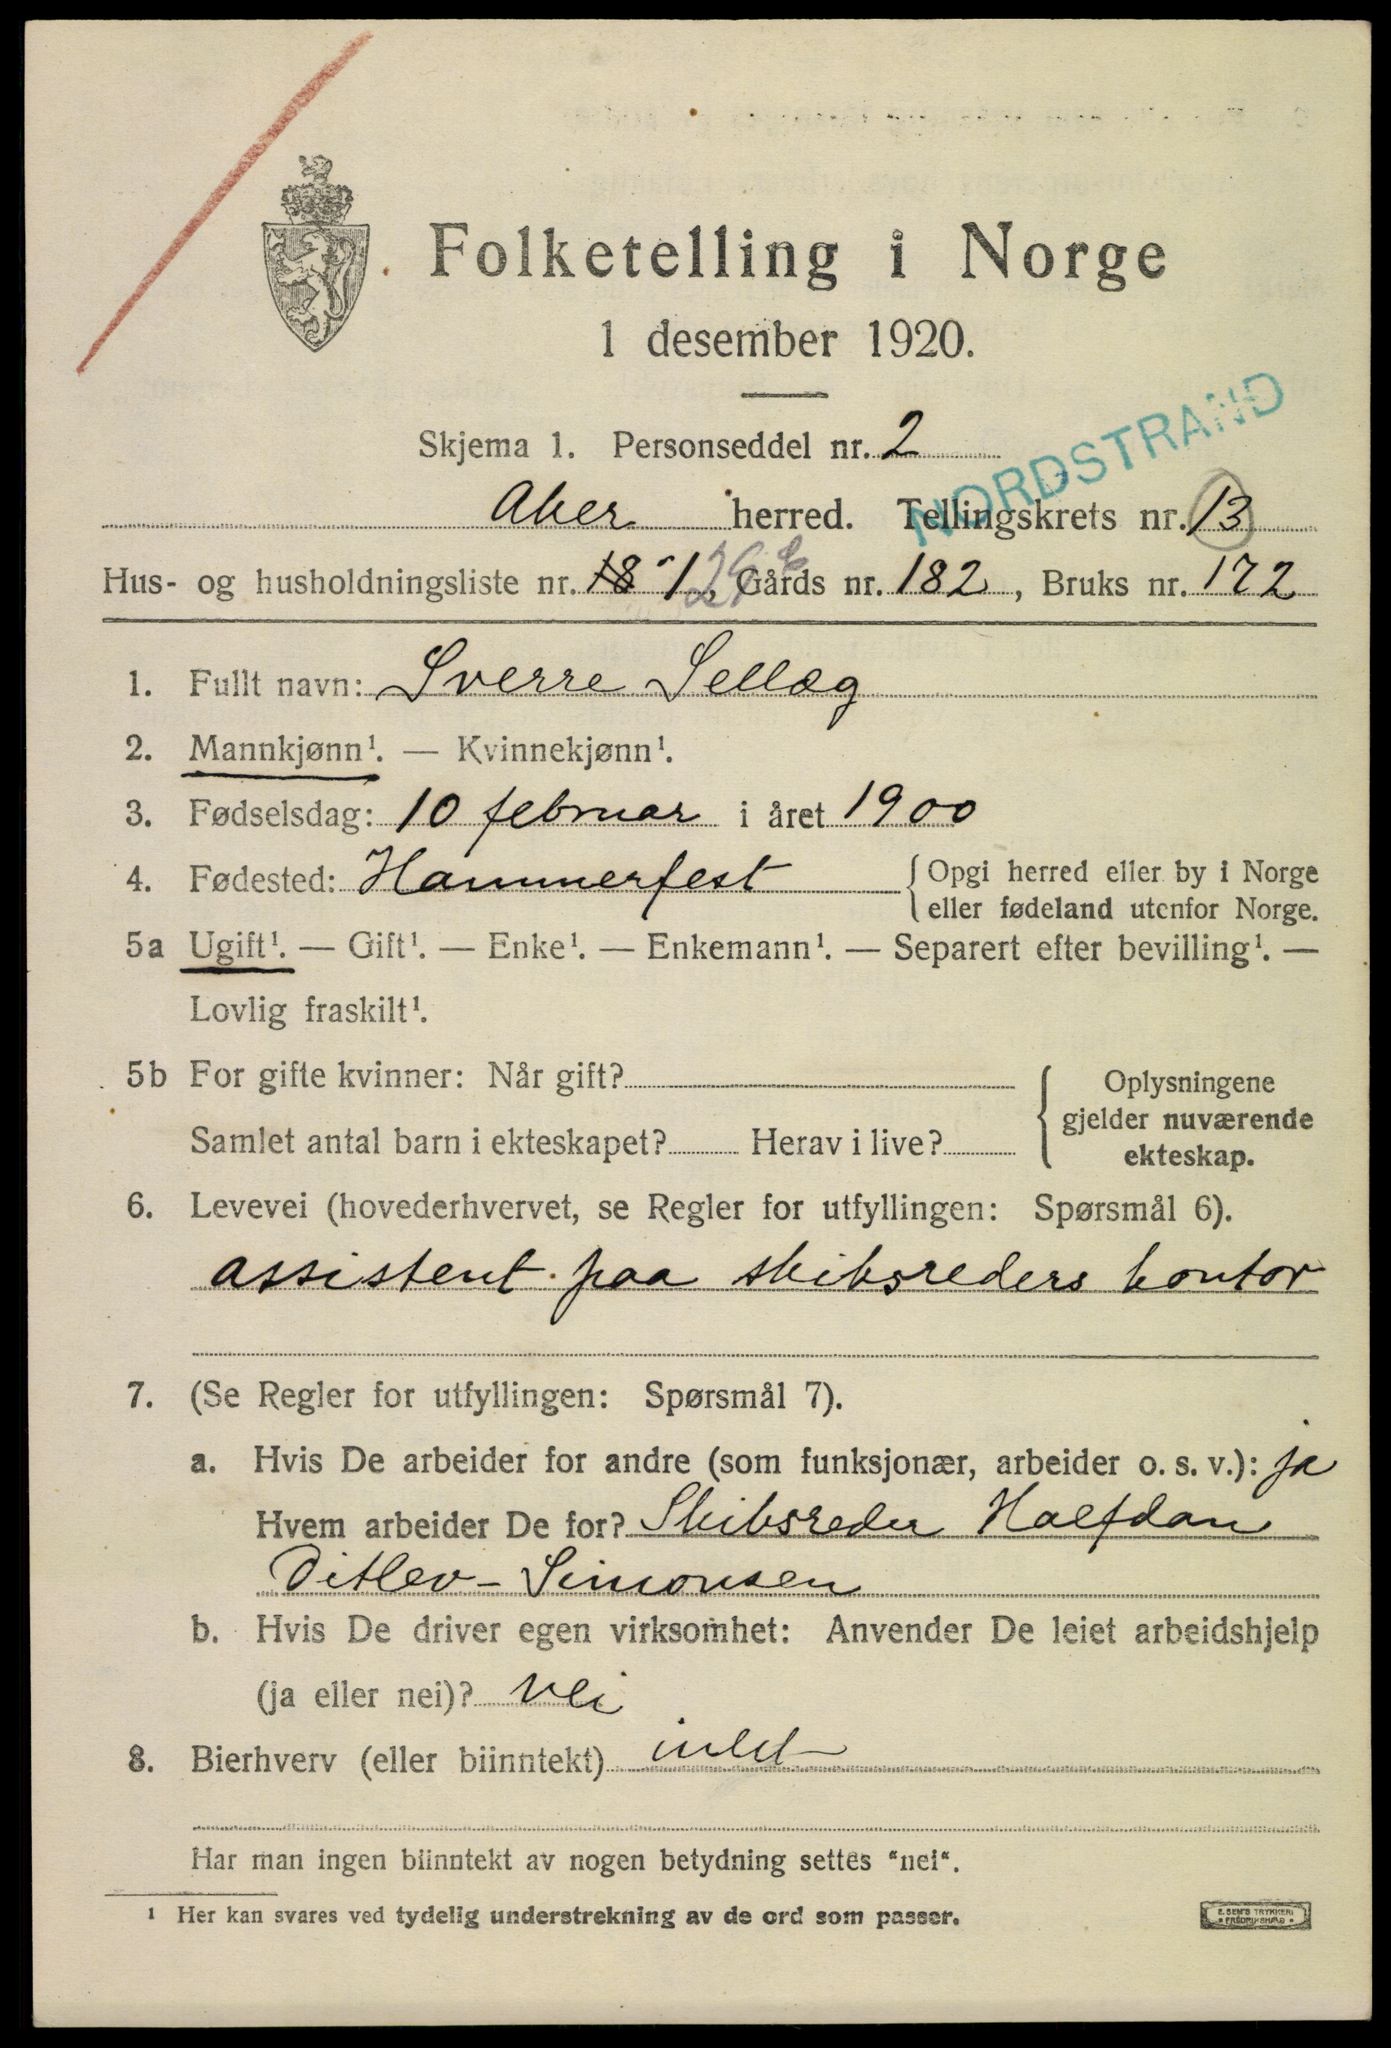 Folketelling i Norge
1 desember 1920.
Skjema 1. Personseddel nr. 2
NORDSTRAND
Aker herred. Tellingskrets nr. 13
Hus- og husholdningsliste nr. 18 1, Gårds nr. 182, Bruks nr. 172
1. Fullt navn: Sverre Sellæg
2. Mannkjønn¹. — Kvinnekjønn¹.
3. Fødselsdag: 10 februar i året 1900
4. Fødested: Hammerfest { Opgi herred eller by i Norge
eller fødeland utenfor Norge.
5a Ugift¹. — Gift¹. — Enke¹. — Enkemann¹. — Separert efter bevilling¹. —
Lovlig fraskilt¹.
5b For gifte kvinner: Når gift? { Oplysningene
gjelder nuværende
Samlet antal barn i ekteskapet? Herav i live?
ekteskap.
6. Levevei (hovederhvervet, se Regler for utfyllingen: Spørsmål 6).
assistent paa skibsreders kontor
7. (Se Regler for utfyllingen: Spørsmål 7).
a. Hvis De arbeider for andre (som funksjonær, arbeider o. s. v.): ja
Hvem arbeider De for? Skibsreder Halfdan
Ditlev-Simonsen
b. Hvis De driver egen virksomhet: Anvender De leiet arbeidshjelp
(ja eller nei)? nei
8. Bierhverv (eller biinntekt) intet
Har man ingen biinntekt av nogen betydning settes "nei".
¹ Her kan svares ved tydelig understrekning av de ord som passer.
E. SEM'S TRYKKERI
FREDRIKSHALD